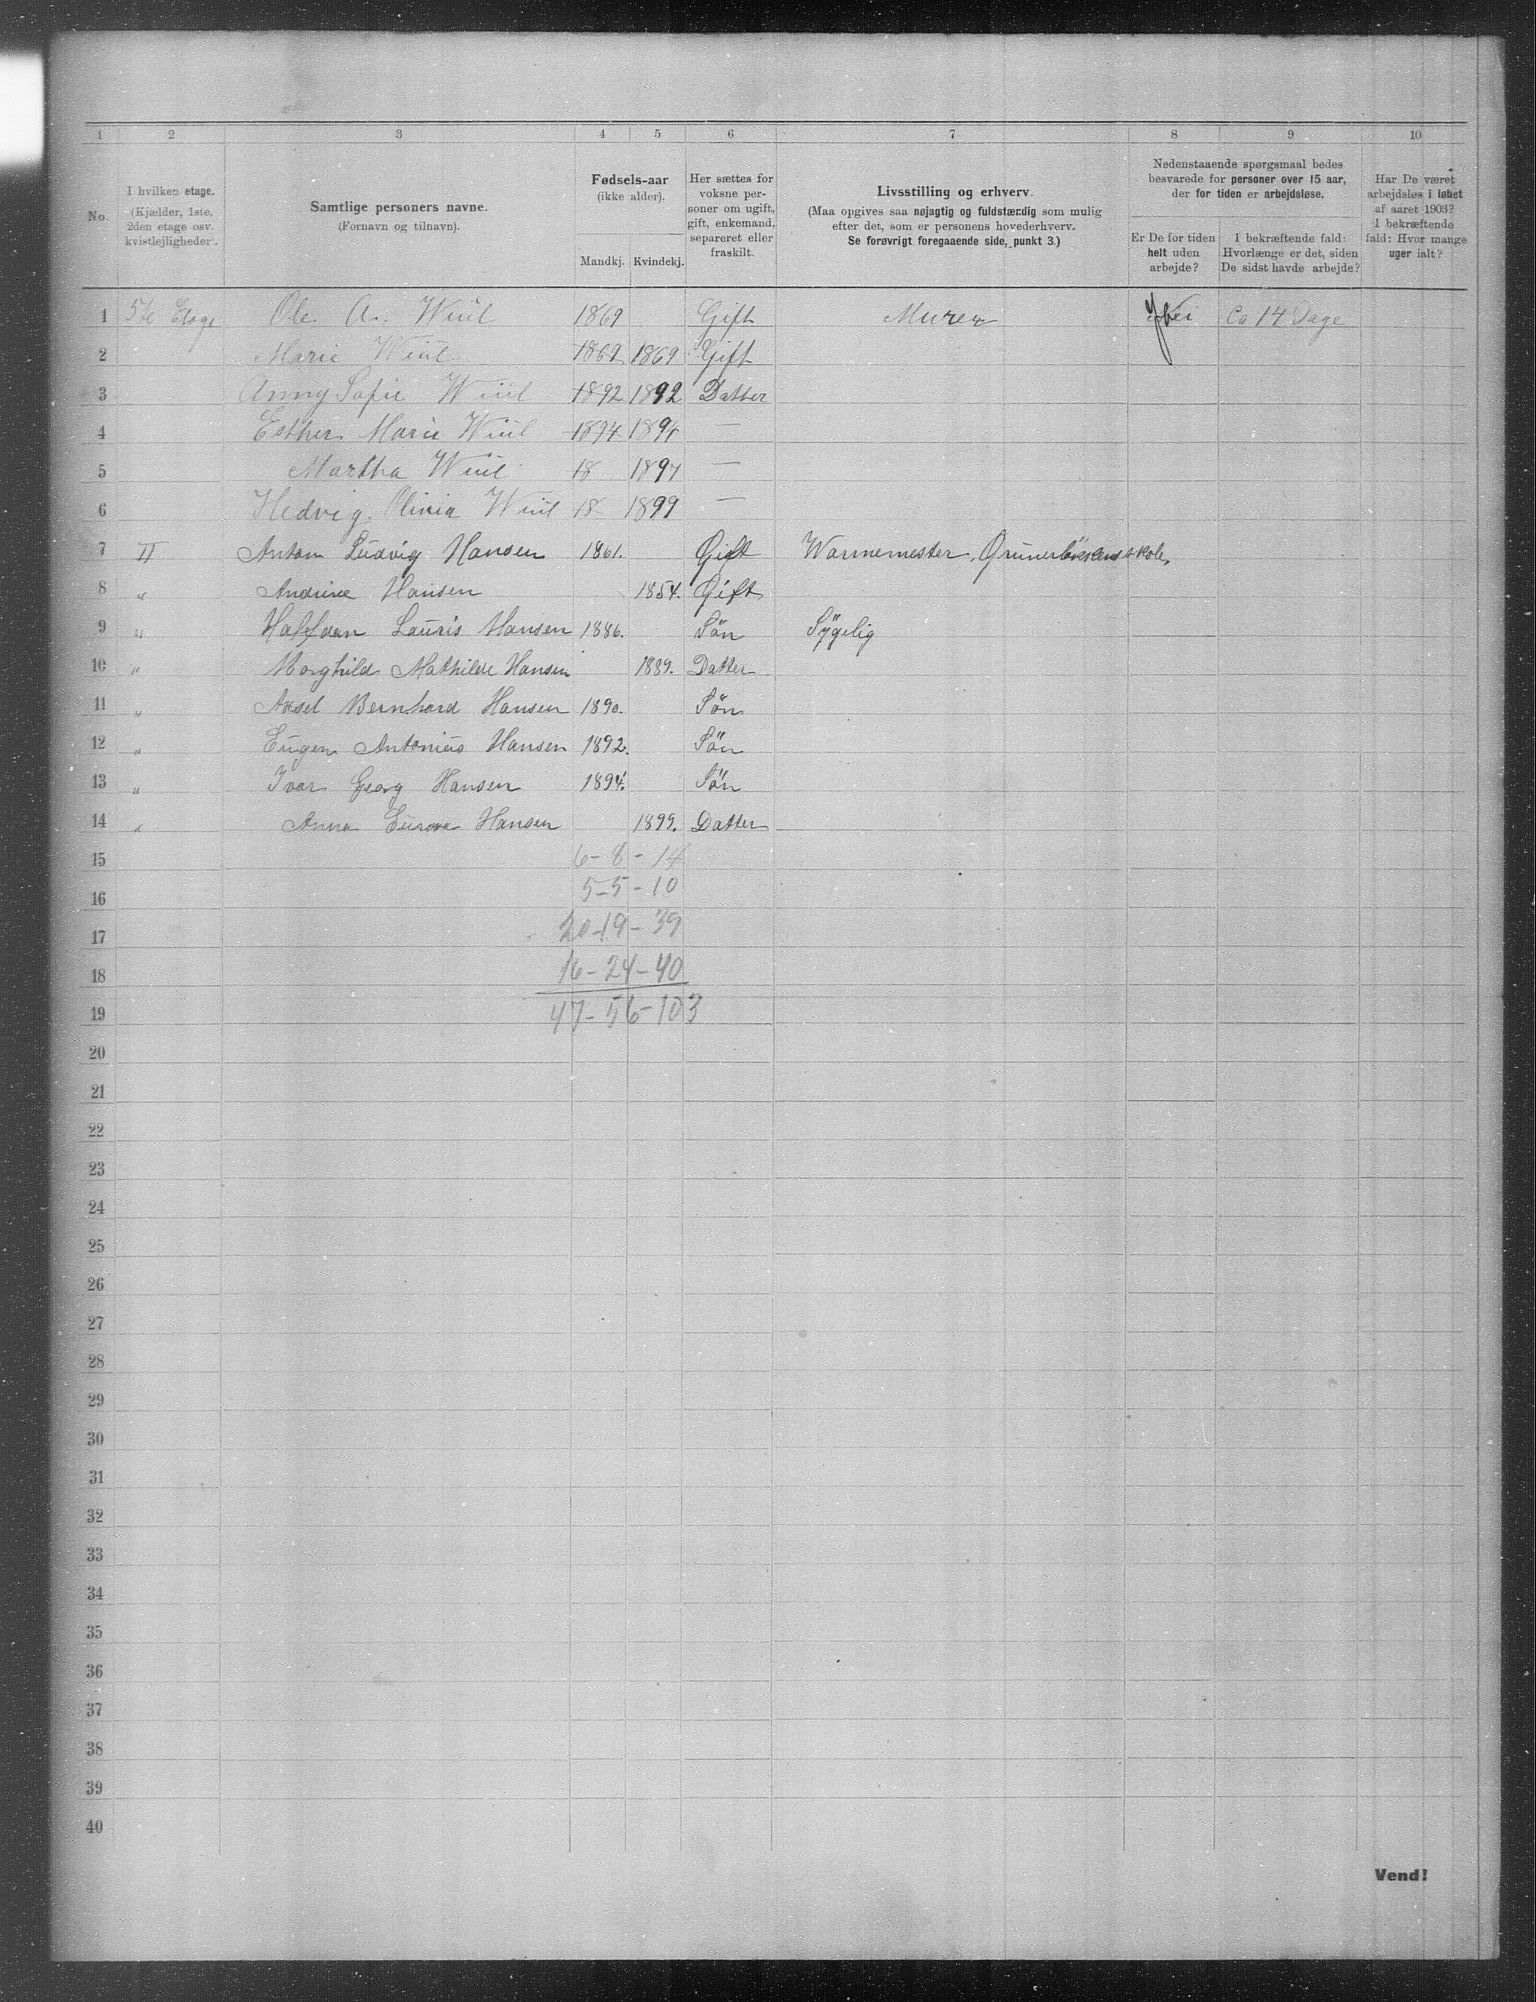 1 2 3 4 5 6 7 8 9 10
No.
I hvilken etage.
(Kjælder, 1ste,
2den etage osv.
kvistlejligheder).
Samtlige personers navne.
(Fornavn og tilnavn).
Fødsels-aar
(ikke alder).
Mandkj. Kvindekj.
Her sættes for
voksne per-
soner om ugift,
gift, enkemand,
separeret eller
fraskilt.
Livsstilling og erhverv.
(Maa opgives saa nøjagtig og fuldstændig som mulig
efter det, som er personens hovederhverv.
Se forøvrigt foregaaende side, punkt 3.)
Nedenstaaende spørgsmaal bedes
besvarede for personer over 15 aar,
der for tiden er arbejdsløse.
Er De for tiden
helt uden
arbejde?
I bekræftende fald:
Hvorlænge er det, siden
De sidst havde arbejde?
Har De været
arbejdsløs i løbet
af aaret 1903?
I bekræftende
fald: Hvor mange
uger ialt?
1 5te Etage Ole A. Wiul 1869 Gift Murer Ca 14 Dage
2 Marie Wiul 1869 1869 Gift
3 Anny Sofie Wiul 1892 1892 Datter
4 Esther Marie Wiul 1894 1894 —
5 Martha Wiul 18 1897 —
6 Hedvig Olivia Wiul 18 1899 —
7 II Anton Ludvig Hansen 1861. Gift Warmemester, Grunerløkkens skole,
8 " Andrine Hansen 1854. Gift
9 " Halfdan Lauris Hansen 1886. Søn Sygelig
10 " Borghild Mathilde Hansen 1889. Datter
11 " Axsel Bernhard Hansen 1890. Søn
12 " Eugen Antonius Hansen 1892. Søn
13 " Ivar Georg Hansen 1894. Søn
14 " Anna Eurora Hansen 1899. Datter
15 6-8-14
16 5-5-10
17 20-19-39
18 16-24-40
19 47-56-103
20
21
22
23
24
25
26
27
28
29
30
31
32
33
34
35
36
37
38
39
40
Vend!